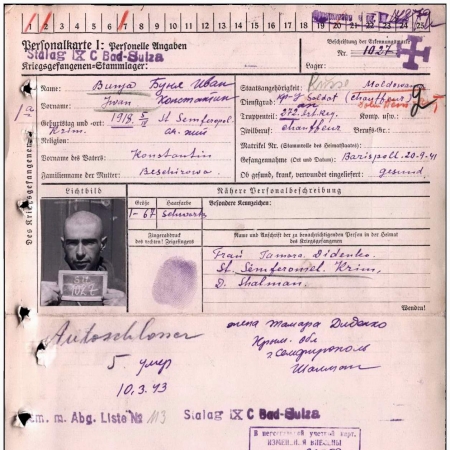 1 2 3 4 5 6 7 8 9 10 11 12 13 14 15 16 17 18 19 20 21 22 23 24 25
Personalkarte I: Personelle Angaben
Kriegsgefangenen-Stammlager:
Stalag IX C Bad-Sulza
Beschriftung der Erkennungsmarke
Nr. 1027
Lager:
Des Kriegsgefangenen
Name: Bunja Буня Иван
Vorname: Iwan Константин
Geburtstag und -ort: 1918 St. Semferopol
Krim.
Religion:
Vorname des Vaters: Konstantin
Familienname der Mutter: Beschirowa
Staatsangehörigkeit: Moldowan
Dienstgrad: Soldat (Chauffeur)
Truppenteil: 372 Komp. usw.:
Zivilberuf: Chauffeur Berufs-Gr.:
Matrikel Nr. (Stammrolle des Heimatstaates):
Gefangennahme (Ort und Datum): Barispoll 20.9.41
Ob gesund, krank, verwundet eingeliefert: gesund
Lichtbild
Nähere Personalbeschreibung
Größe Haarfarbe Besondere Kennzeichen:
1-67 Schwartz
Fingerabdruck
des rechten! Zeigefingers
Name und Anschrift der zu benachrichtigenden Person in der Heimat
des Kriegsgefangenen
Frau Tamara Didenko
St. Krim,
D. Shalman.
Wenden!
1027
Autoschlosser
5. умер
10.3.43
Тамара Диденко
Крым. обл
г Симфирополь
m. Abg. Liste № 113
Stalag IX C Bad-Sulza